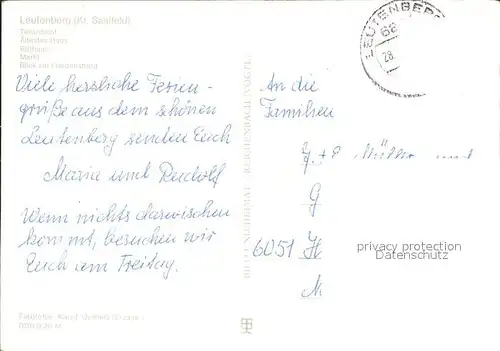 Leutenberg (Kr. Saalfeld)
Teilansicht
Ältestes Haus
Rathaus
Markt
Blick zur Friedensburg
Viele herzliche Ferien-
grüße aus dem schönen
Leutenberg senden Euch
Maria und Rudolf
Wenn nichts dazwischen
kommt, besuchen wir
Euch am Freitag.
BILD UND HEIMAT REICHENBACH (VOGTL)
LEUTENBERG
68
28.
An die
Familien
J. + E Müller und
G
6051 H
M
privacy protection
Datenschutz